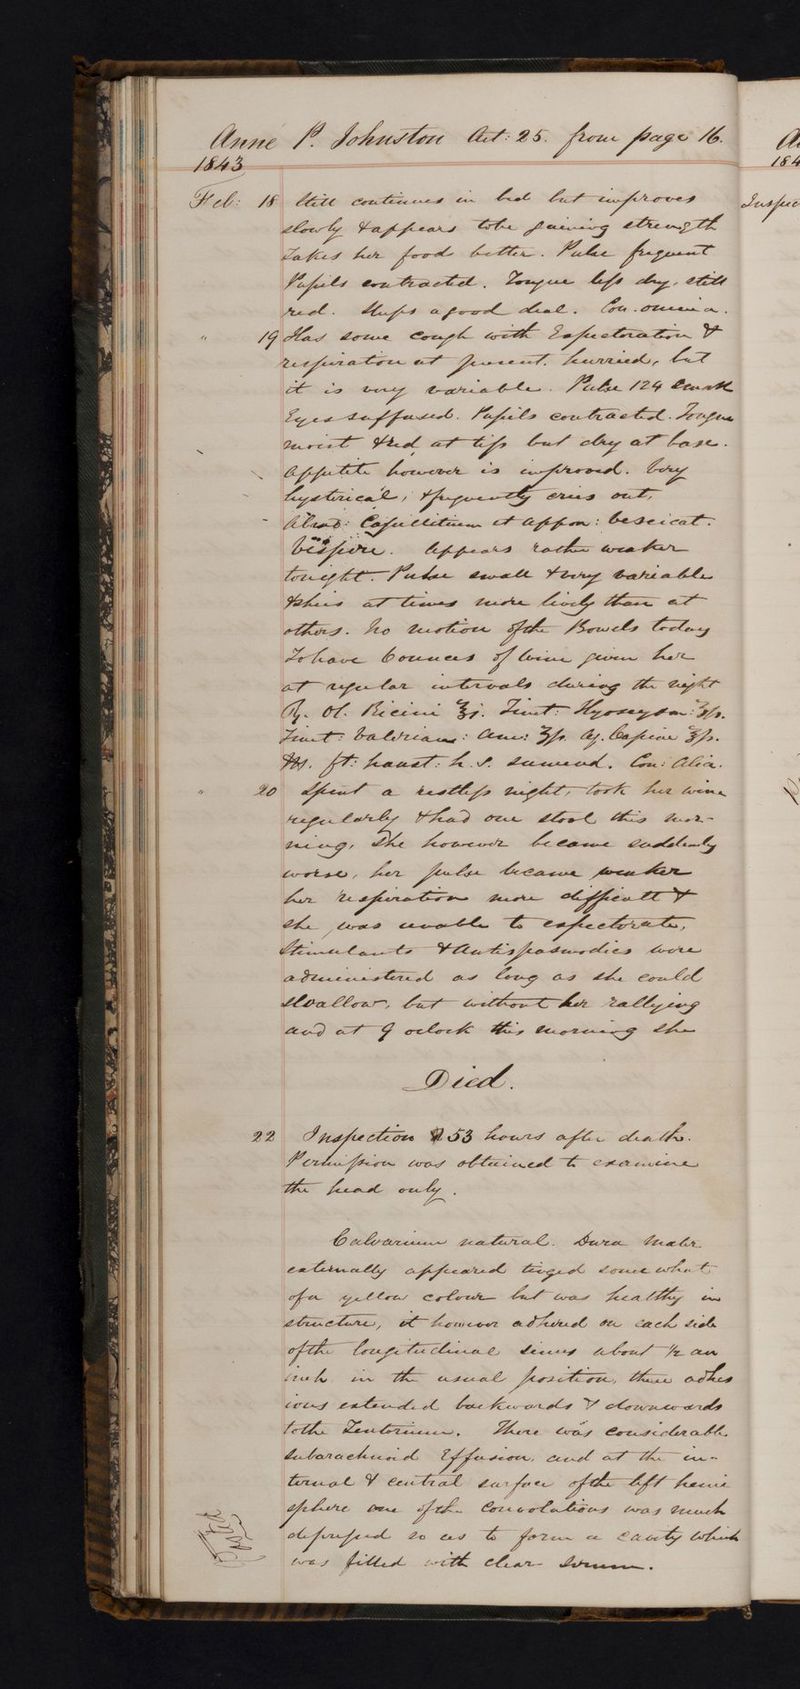 Anne P. Johnston Aet: 25. from page 16.
1843
Feb: 18 Still continues in bed but improves
slowly & appears to be gaining strength
Takes her food better. Pulse frequent
Pupils contracted. Tongue less dry, still
red. Sleeps a good deal. Con. omnia.
" 19 Has some cough with Expectoration &
respiration at present hurried, but
it is very variable. Pulse 124 small
Eyes suffused. Pupils contracted. Tongue
moist & red at tip but dry at base.
Appetite however is improved. Very
hysterical, & frequently cries out.
Abrad: Capillitium et appon: vesicat.
Vespere. Appears rather weaker
tonight. Pulse small & very variable
& she is at times more lively than at
others. No motion of the Bowels today
To have 6 ounces of wine given her
at regular intervals during the night
Rx. Ol. Ricini ʒj. Tinct: Hyoscyam: ʒſs.
Tinct: Valerian: Am: ʒſs Aq. ʒſs.
M. ft: haust: h. s. sumend. Con: alia.
" 20 Spent a restless night, took her wine
regularly & had one stool this mor-
ning. She however became suddenly
worse, her pulse became weaker
her respiration more difficult &
she was unable to expectorate,
Stimulants & Antispasmodics were
administered as long as she could
swallow, but without her rallying
and at 9 oclock this morning she
Died.
22 Inspection 53 hours after death.
Permission was obtained to examine
the head only.
Calvarium natural. Dura Mater
externally appeared tinged somewhat
of a yellow colour but was healthy in
structure, it however adhered on each side
of the longitudinal sinus about ½ an
inch in the usual position, these adhes
ions extended backwards & downwards
to the Tentorium. There was considerable
subarachnoid Effusion, and at the in-
ternal & central surface of the left hemi
sphere one of the Convolutions was much
depressed so as to form a cavity which
was filled with clear serum.
184
Inspec